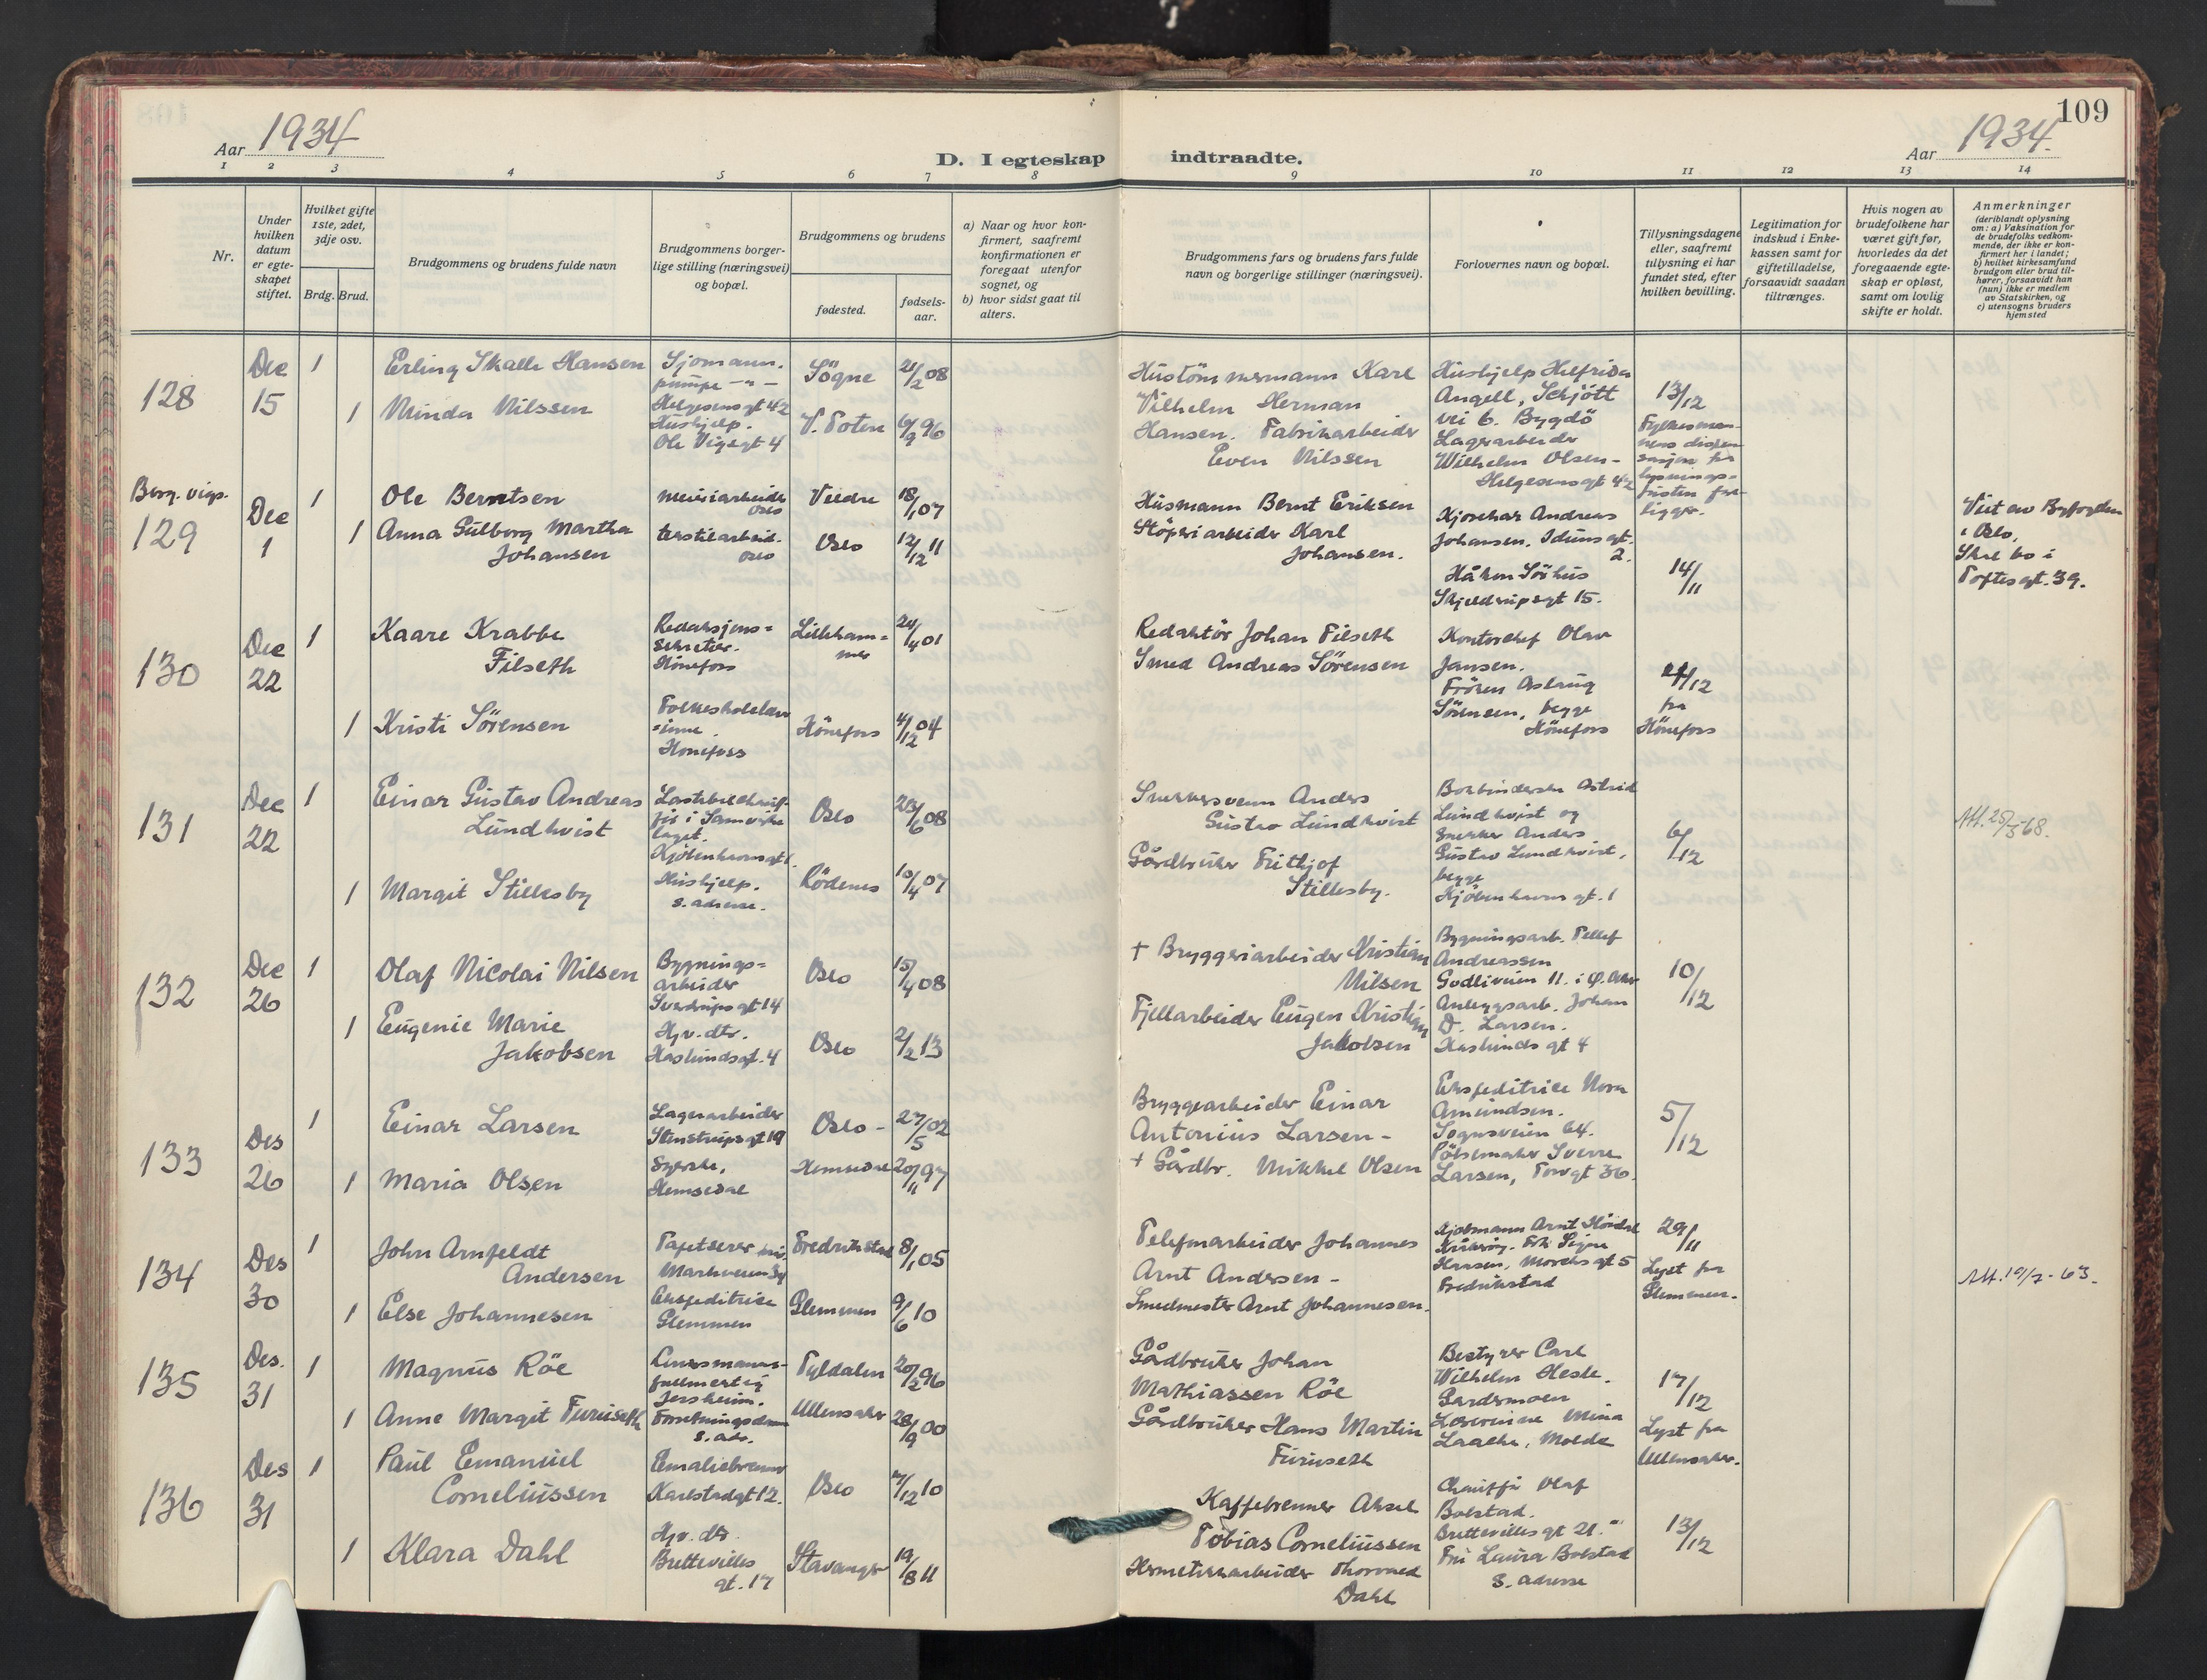 109
Aar 1934
D. I egteskap indtraadte.
Aar 1934.
1 2 3 4 5 6 7 8 9 10 11 12 13 14
Nr.
Under
hvilken
datum
er egte-
skapet
stiftet.
Hvilket gifte
1ste, 2det,
3dje osv.
Brdg. Brud.
Brudgommens og brudens fulde navn
Brudgommens borger-
lige stilling (næringsvei)
og bopæl.
Brudgommens og brudens
fødested.
fødsels-
aar.
a) Naar og hvor kon-
firmert, saafremt
konfirmationen er
foregaat utenfor
sognet, og
b) hvor sidst gaat til
alters.
Brudgommens fars og brudens fars fulde
navn og borgerlige stillinger (næringsvei).
Forlovernes navn og bopæl.
Tillysningsdagene
eller, saafremt
tillysning ei har
fundet sted, efter
hvilken bevilling.
Legitimation for
indskud i Enke-
kassen samt for
giftetilladelse,
forsaavidt saadan
tiltrænges.
Hvis nogen av
brudefolkene har
været gift før,
hvorledes da det
foregaaende egte-
skap er opløst,
samt om lovlig
skifte er holdt.
Anmerkninger
(deriblandt oplysning
om: a) Vaksination for
de brudefolks vedkom-
mende, der ikke er kon-
firmert her i landet;
b) hvilket kirkesamfund
brudgom eller brud til-
hører, forsaavidt han
(hun) ikke er medlem
av Statskirken, og
c) utensogns bruders
hjemsted
128
Dec
15
1
Erling Skalle Hansen
Sjømann.
pumpe —"—
Helgesensgt 42
Søgne
21/2 08
1
Minda Nilssen
Hushjelp.
Ole Vigsgt 4
V. Toten
6/9 96
Hustømmermann Karl
Vilhelm Herman
Hansen. Fabrikarbeider
Even Nilssen
Hushjelp Helfrida
Angell, Schjøtt
vei 6. Bygdø
Lagerarbeider
Wilhelm Olsen -
Helgesensgt 42
13/12
Fylkesman-
nens dispen-
sasjon fra
lysnings-
fristen fore-
ligger.
Borg. vigs.
129
Dec
1
1
Ole Berntsen
meieriarbeider
Oslo
Veldre
18/1 07
1
Anna Gulborg Martha
Johansen
tekstilarbeid.
Oslo
Oslo
12/12 11
Husmann Bernt Eriksen
Støperiarbeider Karl
Johansen.
Kjørekar Andreas
Johansen, Idunsgt.
2.
Håkon Sørhus
Skjeldrupsgt 15.
14/11
Viet av Byfogden
i Oslo,
Skal bo i
Toftesgt. 39.
130
Dec
22
1
Kaare Krabbe
Filseth
Redaksjons=
sekretær.
Hønefoss
Lilleham=
mer
24/4 01
1
Kristi Sørensen
Folkeskolelær
=inne.
Hønefoss
Hønefoss
4/12 04
Redaktør Johan Filseth
Smed Andreas Sørensen
Kontorchef Olav
Jansen.
Frøken Aslaug
Sørensen, begge
Hønefoss
fra
Hønefoss
131
Dec
22
1
Einar Gustav Andreas
Lundkvist
Lastebilchauf-
før i Samvirke
laget.
Kjøbenhavnsgt 1.
Oslo
23/6 08
1
Margit Stillesby
Hushjelp.
s. adresse.
Rødenes
10/4 07
Snekkersvenn Anders
Gustav Lundkvist
Gårdbruker Frithjof
Stillesby.
Bokbinderske Astrid
Lundkvist og
Snekker Anders
Gustav Lundkvist,
begge
Kjøbenhavns gt. 1
6/12
Att. 25/5-68.
132
Dec
26
1
Olaf Nicolai Nilsen
Bygnings=
arbeider
Sverdrupsgt 14
Oslo
15/4 08
1
Eugenie Marie
Jakobsen
Hjv. dtr.
Haslundsgt. 4
Oslo
2/2 13
+ Bryggeriarbeider Kristian
Nilsen
Fjellarbeider Eugen Kristian
Jakobsen
Bygningsarb. Tellef
Andreassen
Godliveien 11. i Ø. Aker
Anleggsarb. Johan
D. Larsen.
Haslunds gt 4
10/12
133
Des
26
1
Einar Larsen
Lagerarbeider
Stenstrupsgt 19
Oslo -
27/5 02
1
Maria Olsen
Syerske,
Hemsedal
Hemsedal
20/11 97
Bryggearbeider Einar
Antonius Larsen -
+ Gårdbr. Mikkel Olsen
Ekspeditrice Nora
Amundsen.
Sognsveien 64.
Pølsemaker Sverre
Larsen, Torvgt 36.
5/12
134
Des
30
1
John Arnfeldt
Andersen
Tapetserer
Markveien 34
Fredrikstad
8/1 05
1
Else Johannesen
Ekspeditrice
Glemmen
Glemmen
9/6 10
Telefonarbeider Johannes
Arnt Andersen -
Smedmester Arnt Johannesen.
Frk Signe
Hansen, gt 5
Fredrikstad
29/11
Lyst fra
Glemmen.
Att. 19/7-63.
135
Des.
31
1
Magnus Röe
Lensmanns-
fullmektig
Jessheim.
Tyldalen
20/2 96
1
Anne Margit Furuseth
Forretningsdame
s. adr.
Ullensaker
28/9 00
Gårdbruker Johan
Mathiassen Röe
Gårdbruker Hans Martin
Furuseth
Bestyrer Carl
Wilhelm Hesle.
Gardermoen
Lærerinne Mina
Laache, Molde
17/12
Lyst fra
Ullensaker.
136
Des
31
1
Paul Emanuel
Corneliussen
Emaliebrenner
Karlstadgt 12.
Oslo
7/12 10
1
Klara Dahl
Hjv. dtr.
Brettevilles
gt. 17
Stavanger
19/8 11
Kaffebrenner Aksel
Tobias Corneliussen
Hermetikkarbeider Thorvald
Dahl
Chauffør Olaf
Bolstad.
Brettevilles gt 21.
Fru Laura Bolstad
s. adresse
13/12